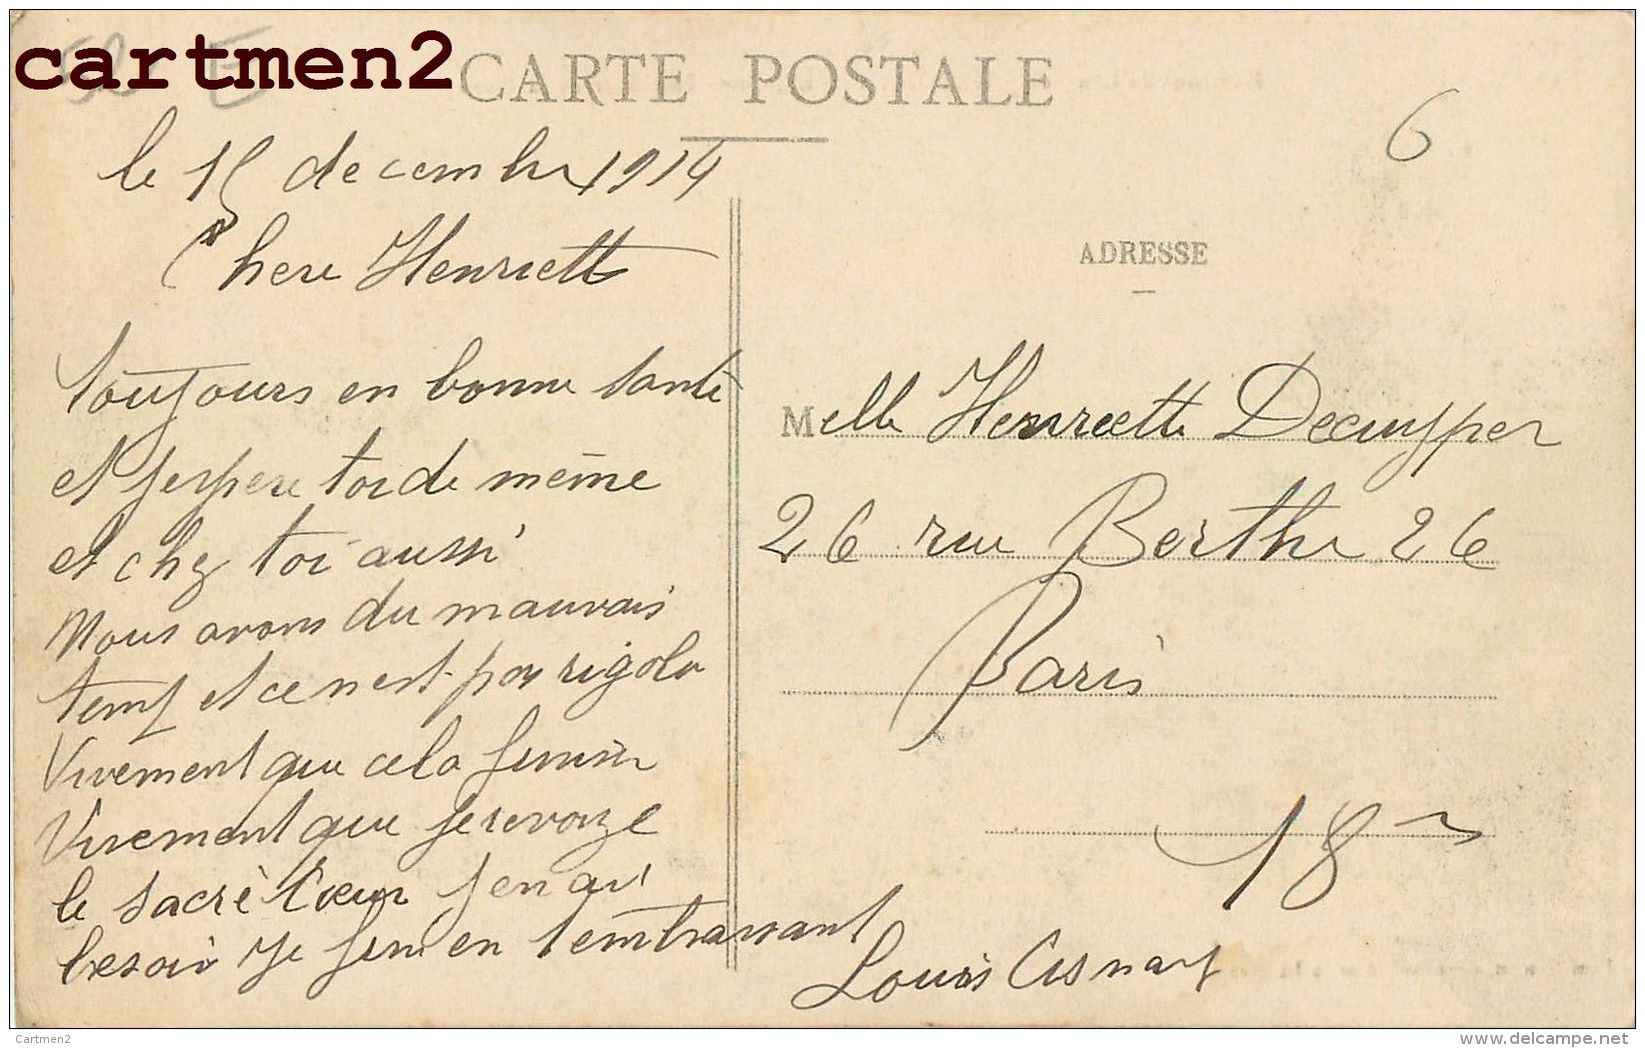 cartmen2
CARTE POSTALE
6
le 15 decembre 1914
Chere Henriette
toujours en bonne santé
et jespere toi de même
et chez toi aussi
Nous avons du mauvais
temp et ce nest pas rigolo
Vivement que cela finisse
Vivement que je revoize
le sacré Cœur jen ai
besoin Je fini en tembrassant
Louis
ADRESSE
Melle Henriette Decuyper
26 rue Berthe 26
Paris
18
Cartmen2
www.delcampe.net